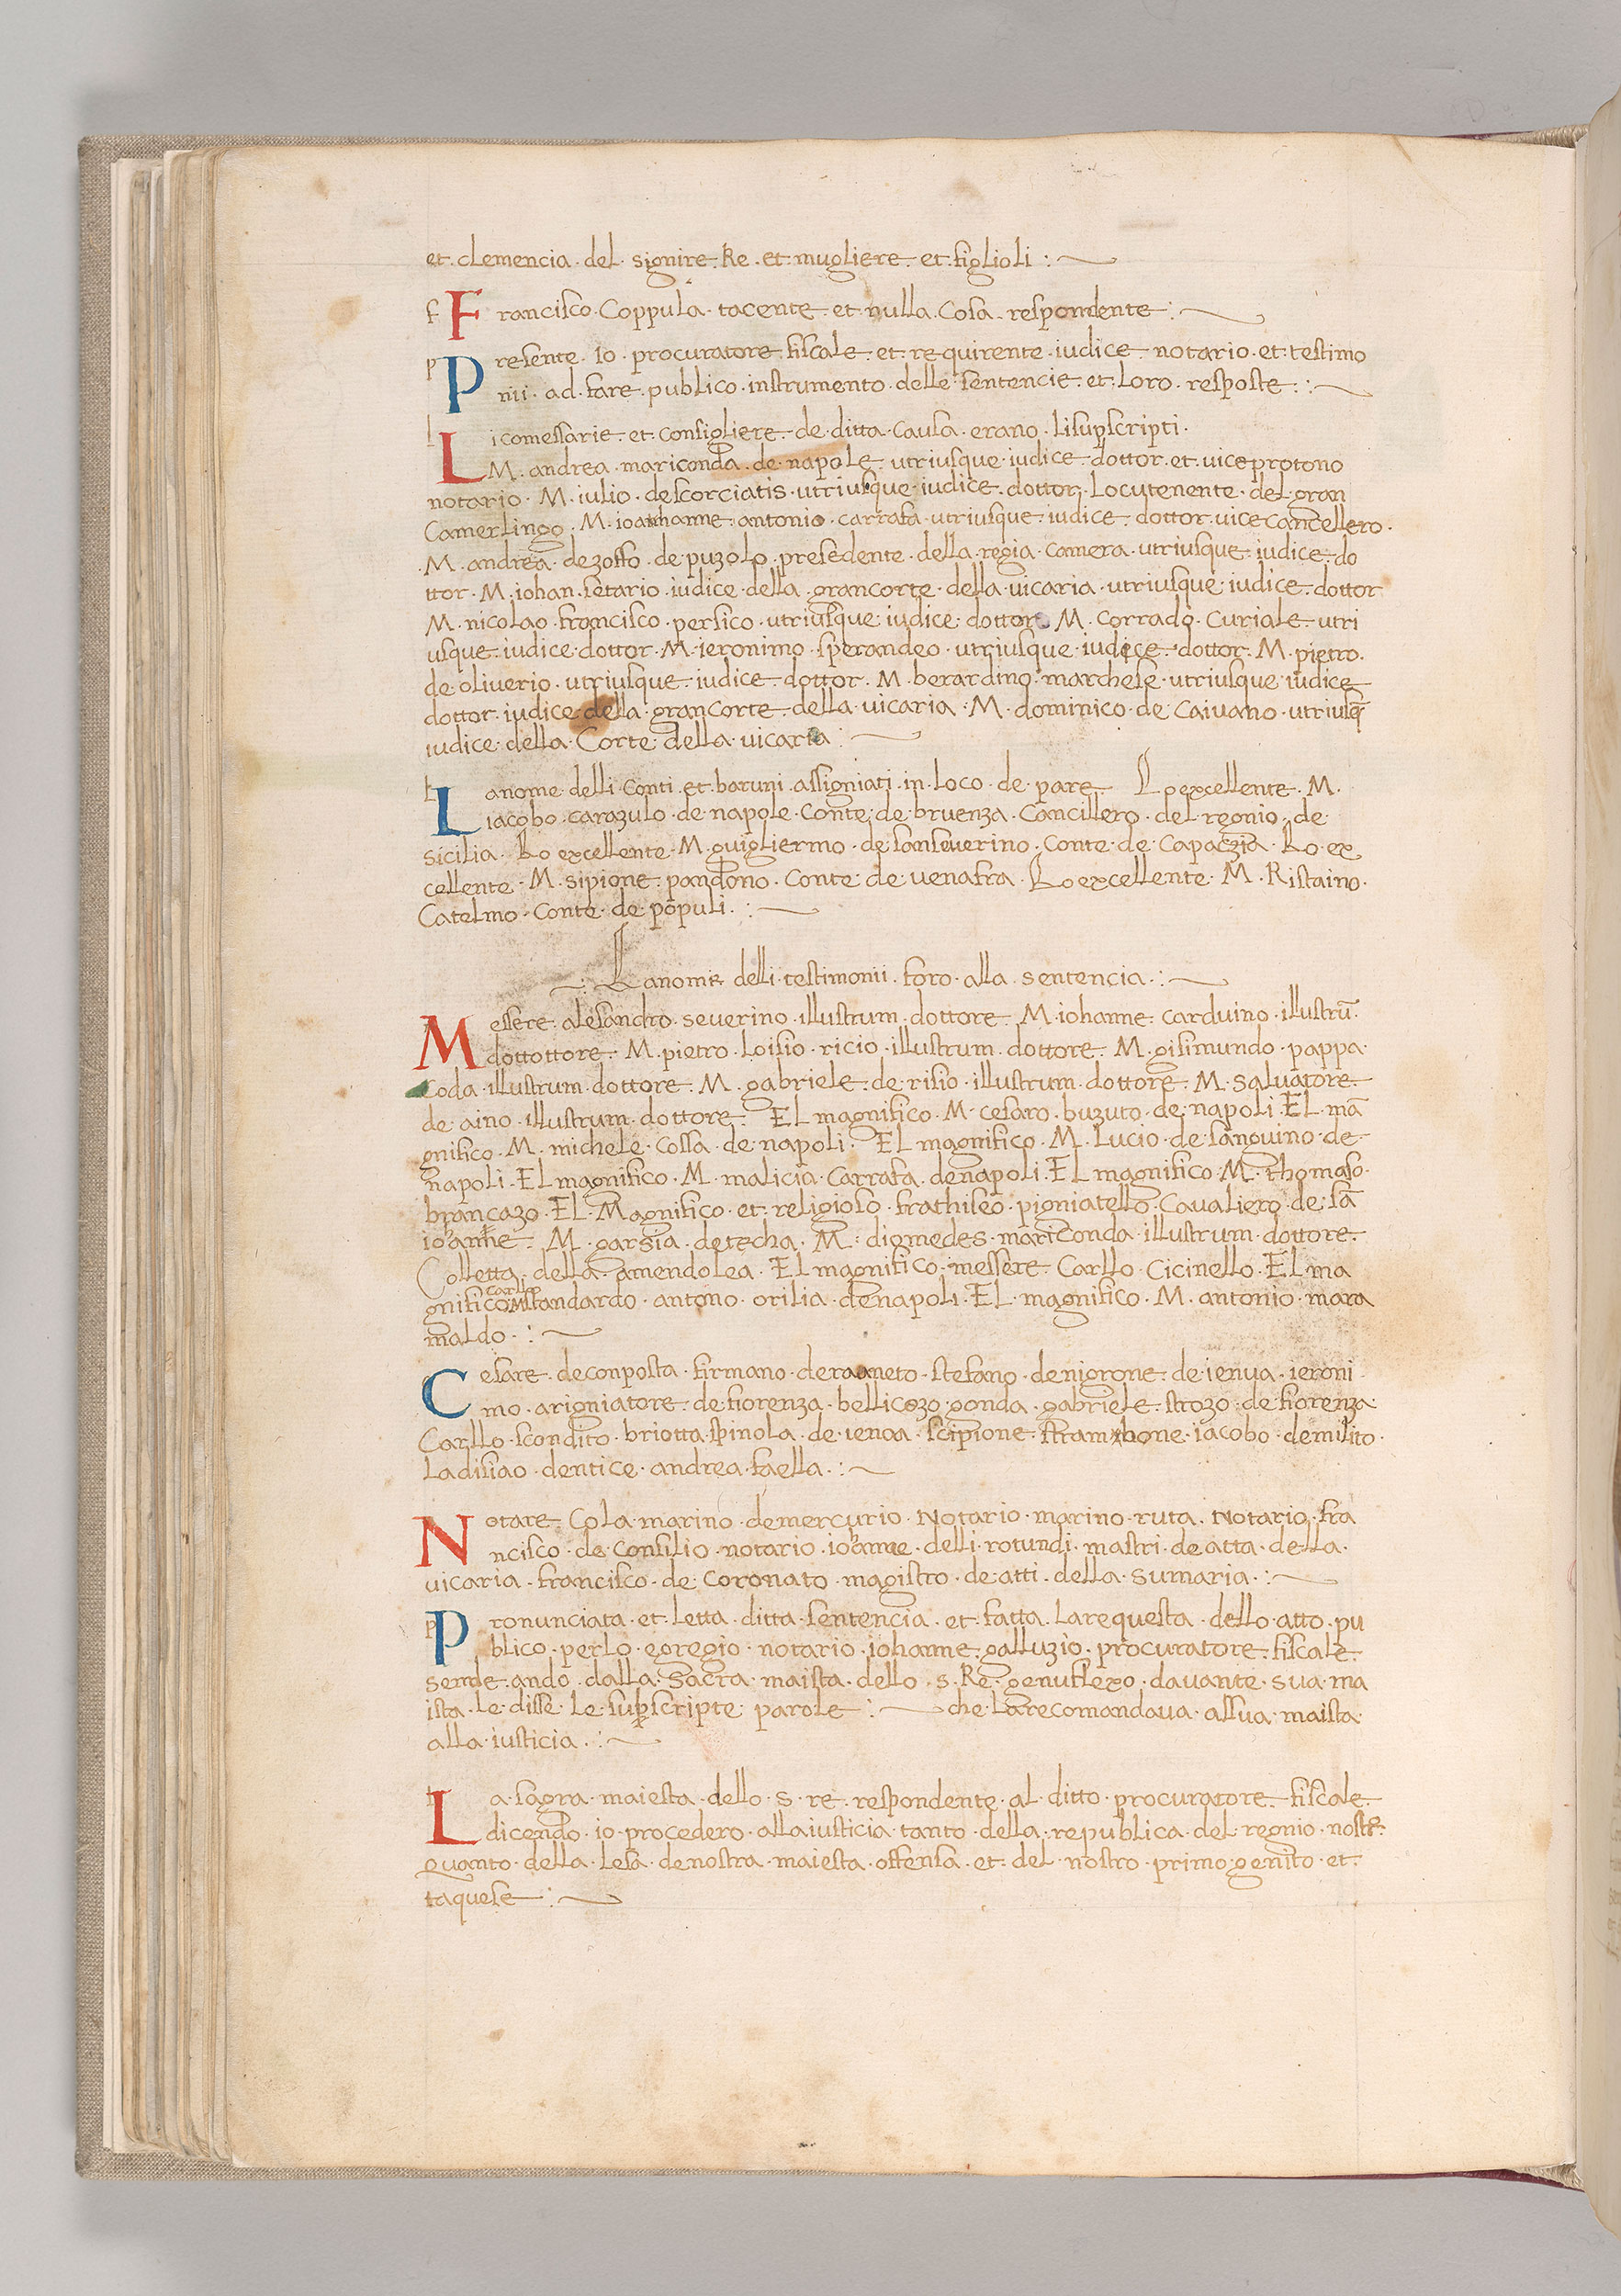 et. clemencia. del. signire. Re. et. mugliere. et. figlioli :~
f Francisco. Coppula. tacente. et. nulla. Cosa. respondente :~
p Presente. Io. procuratore. fiscale. et. requirente. iudice. notario. et. testimo
nii. ad. fare. publico. instrumento. delle. sentencie. et. loro. resposte :~
l Li comessarie. et. consigliere. de. ditta. Causa. erano. li supscripti.
M. andrea. mariconda. de. napole. utriusque. iudice. dottor. et. vice protono
notario. M. iulio. de scorciatis. utriusque. iudice. dottor. Locutenente. del gran
Camerlingo. M. ioanhanne. antonio. carrafa. utriusque. iudice. dottor. vice cancellero.
.M. andrea. de zoffo. de puzolo. presedente. della. regia. camera. utriusque. iudice. do
ttor. M. iohan. setario. iudice. della. gran corte. della. vicaria. utriusque. iudice. dottor
M. nicolao. francisco. persico. utriusque. iudice. dottor. M. corrado. Curiale. utri
usque. iudice. dottor. M. ieronimo. sperandeo. utriusque. iudice. dottor. M. pietro.
de oliverio. utriusque. iudice. dottor. M. berardino. marchese. utriusque. iudice
dottor. iudice. della. gran Corte. della. vicaria. M. dominico. de Caivano. utriusq̄
iudice. della. Corte. della. vicaria :~
l La nome. delli. Conti. et. baruni. assigniati. in. Loco. de. pare. Lo excellente. M.
iacobo. carazulo. de napole. Conte. de. bruenza. Cancillero. del. regnio. de.
sicilia. Lo excellente. M. guigliermo. de sanseverino. Conte. de. Capaczia. Lo. ex
cellente. M. sipione. pandono. Conte. de. venafra. Lo excellente. M. Ristaino.
Catelmo. Conte. de. populi. :~
~: La nome. delli. testimonii. foro. alla. sentencia. :~
Messere. alesandro. severino. illustrum. dottore. M. iohanne. carduino. illustrū.
dottottore. M. pietro. Loisio. ricio. illustrum. dottore. M. gisimundo. pappa.
Coda. illustrum. dottore. M. gabriele. de. risio. illustrum. dottore. M. salvatore.
de aino. illustrum. dottore. El magnifico. M. cesaro. buzuto. de. napoli. El. mā
gnifico. M. michele. Cossa. de. napoli. El magnifico. M. Lucio. de. sanguino. de.
napoli. El magnifico. M. malicia. Carrafa. de napoli. El magnifico. M. thomaso.
brancazo. El. Magnifico. et. religioso. fra thiseo. pigniatello. Cavaliero. de. sā
iohanne. M. garsia. de techa. M. diomedes. mariconda. illustrum. dottore.
Colletta. della. amendolea. El magnifico. messere. Carllo. Cicinello. El ma
gnifico M. carllo standardo. antono. orilia. de napoli. El. magnifico. M. antonio. mara
maldo. :~
Cesare. de conposta. firmano. de raoneto. stefano. de nigrone. de ienua. ieroni.
mo. arigniatore. de fiorenza. bellicozo. gonda. gabriele. strozo. de fiorenza.
Carllo. scondito. briotta. spinola. de. ienoa. scipione. strambone. iacobo. de milito.
Ladislao. dentice. andrea. faella. :~
Notare. Cola. marino. de mercurio. Notario. marino. ruta. Notario. fra
ncisco. de. Consilio. notario. iohanne. delli. rotundi. mastri. de atta. della.
vicaria. francisco. de. coronato. magistro. de atti. della. sumaria. :~
p Pronunciata. et. letta. ditta. sentencia. et. fatta. la requesta. dello. atto. pu
blico. per lo. egregio. notario. iohanne. galluzio. procuratore. fiscale.
sende. ando. dalla. Sacra. maista. dello. s. Re. genuflexo. davante. sua. ma
ista. le. disse. le. supscripte. parole :~ che. la recomandava. assua. maista.
alla. iusticia. :~
l La. sagra. maiesta. dello. s. re. respondente. al. ditto. procuratore. fiscale.
dicendo. io. procedero. alla iusticia. tanto. della. republica. del. regnio. nostr.
quanto. della. lesa. de nostra. maiesta. offensa. et. del. nostro. primo genito. et.
taquese :~